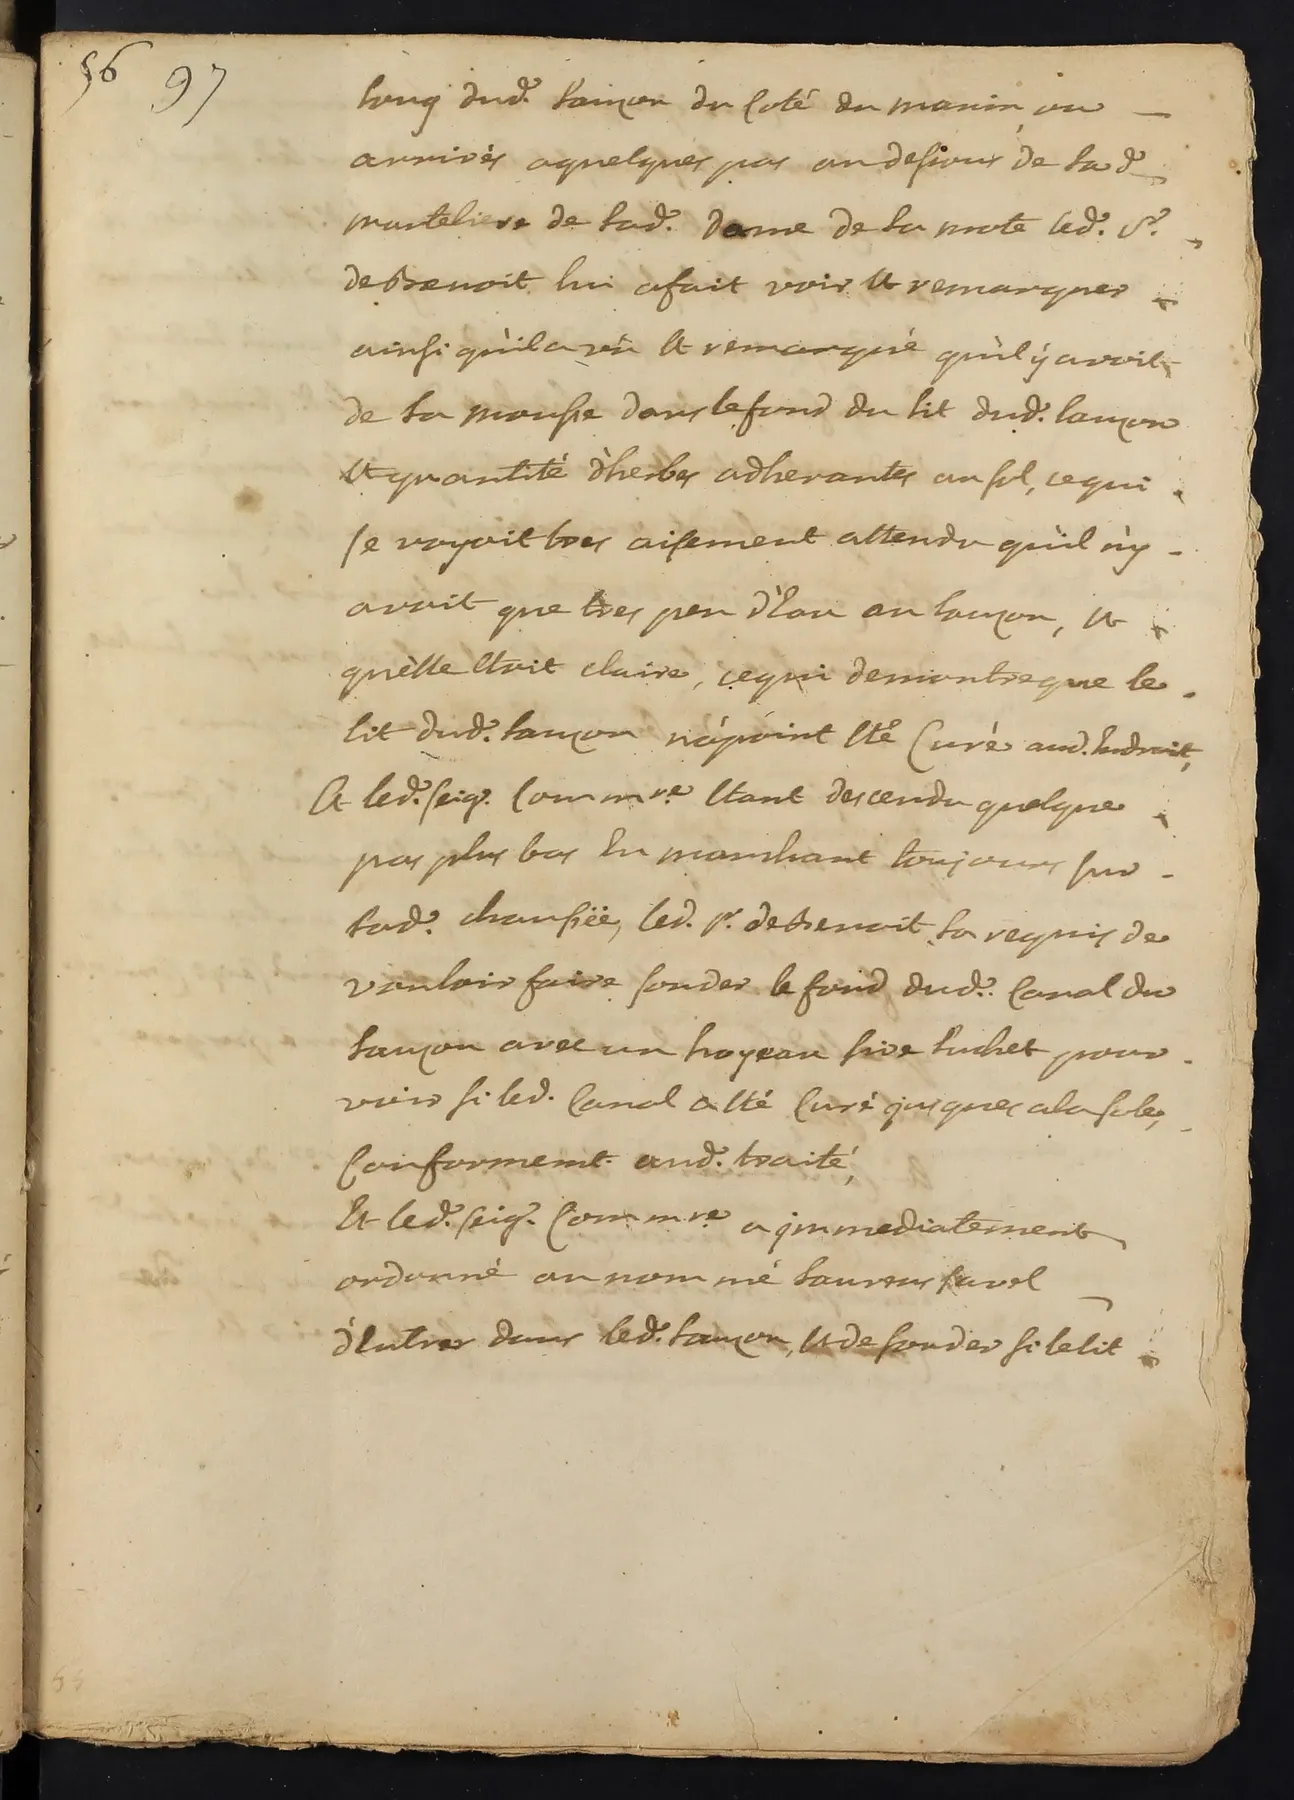 56 97
long dud.ᵗ lauzon du Coté du marin, ou
arrivés aquelques pas au dessous de lad.ᵉ
marteliere de lad.ᵉ Dame de la mote led.ᵗ S.ʳ
de Benoit lui afait voir Et remarquer
ainsi qu'il a vû Et remarqué qu'il y avoit
de la mousse dans le fond du lit dud.ᵗ lauzon
Et quantité d'herbes adherantes au sol, cequi
se voyoit tres aisement attendu qu'il n'y
avoit que tres peu d'Eau au lauzon, Et
qu'elle Etoit claire, cequi demontre que le
lit dud.ᵗ lauzon n'a point Eté Curé aud. Endroit,
Et led.ᵗ seig.ʳ Comm.ʳᵉ Etant descendu quelque
pas plus bas En marchant toujours sur
lad.ᵉ chaussée, led. s.ʳ de Benoit la requis de
vouloir faire sonder le fond dud.ᵗ Canal du
lauzon avec un hoyeau sive luchet pour
voir si led. Canal a Eté Curé jusques a la sole,
Conformemt. aud.ᵗ traité,
Et led.ᵗ seig.ʳ Comm.ʳᵉ a immediatement
ordonné au nommé laurens favel
d'Entrer dans led.ᵗ lauzon, Et de sonder si le lit